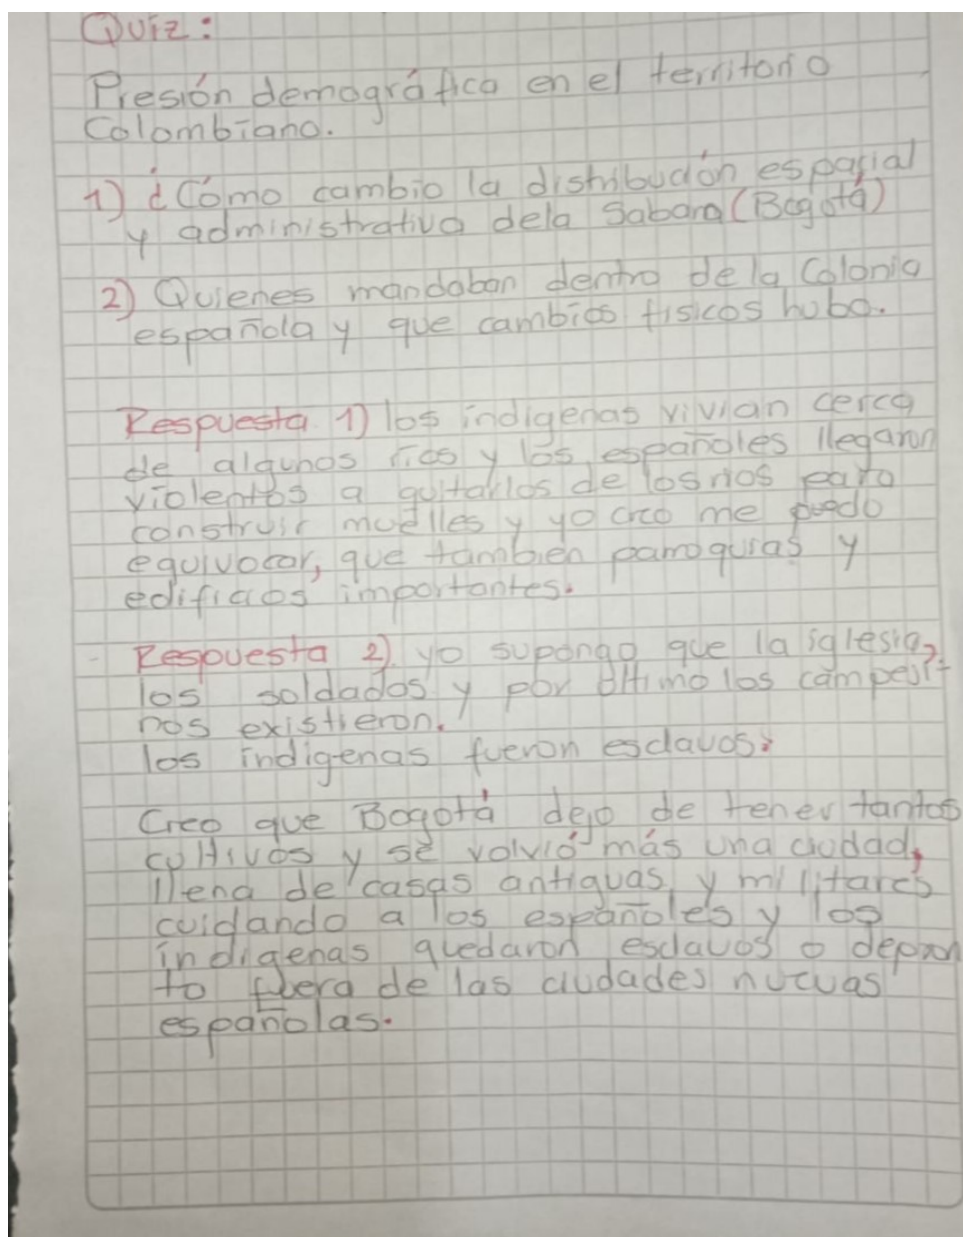 Quiz:
Presión demográfica en el territorio
Colombiano.
1) ¿Cómo cambio la distribución espacial
y administrativa dela Sabana (Bogotá)
2) Quienes mandaban dentro dela Colonia
española y que cambios fisicos hubo.
Respuesta 1) los indigenas vivian cerca
de algunos rios y los españoles llegaron
violentos a quitarlos de los rios para
construir muelles y yo creo me puedo
equivocar, que tambien parroquias y
edificios importantes.
Respuesta 2) yo supongo que la iglesia,
los soldados y por último los campesi-
nos existieron.
los indigenas fueron esclavos.
Creo que Bogotá dejo de tener tantos
cultivos y se volvió más una ciudad,
llena de casas antiguas y militares
cuidando a los españoles y los
indigenas quedaron esclavos o
to fuera de las ciudades nuevas
españolas.